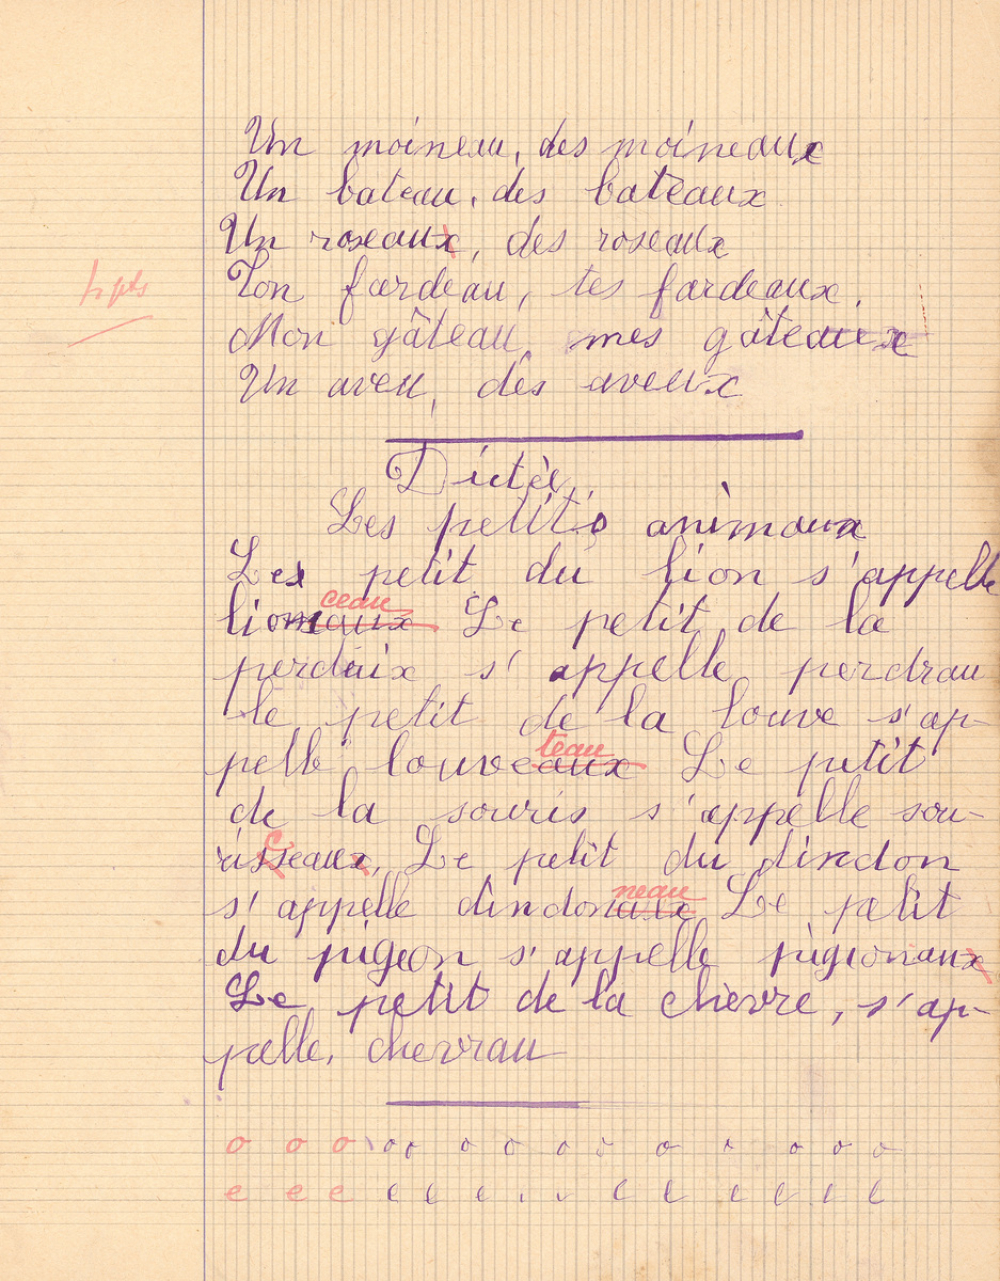 Un moineau, des moineaux
Un bateau, des bateaux
Un roseaux, des roseaux
Ton fardeau, tes fardeaux.
Mon gâteau, mes gâteaux
Un aveu, des aveux
Dictée
Les petits animaux
Les petit du lion s'appelle
ceau
lionaux Le petit de la
perdaix s'appelle perdrau
le petit de la louve s'ap-
teau
pelle louveaux Le petit
de la souris s'appelle sou-
risseaux, Le petit du dindon
neau
s'appelle dindonaux Le petit
du pigeon s'appelle pigionaux
Le petit de la chèvre, s'ap-
pelle, chevrau
o o o o o o o o o o o o o o
e e e e e e e e e e e e